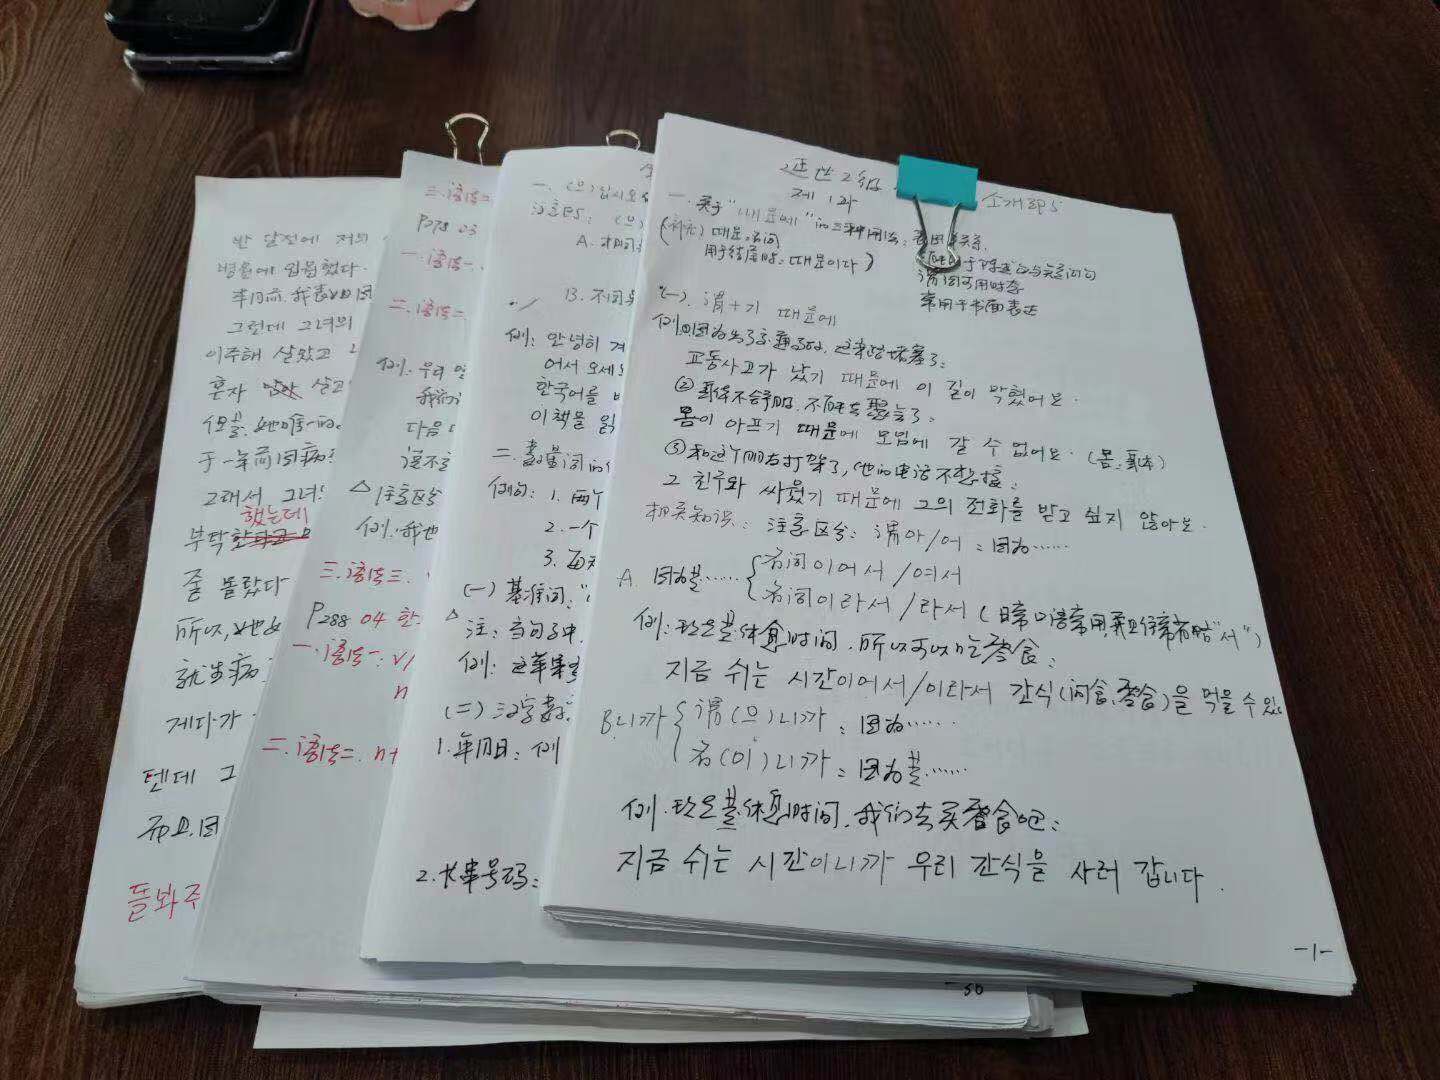 延世2级
제1과
소개 P5
一. 关于"때문에"的三种用法:
(补充) 때문:名词
用于结尾时:때문이다)
谓词可用时态
常用于书面表达
(一). 谓+기 때문에
例①因为出了交通事故, 这条路堵塞了:
교통사고가 났기 때문에 이 길이 막혔어요.
②身体不舒服, 不能去聚会了:
몸이 아프기 때문에 모임에 갈 수 없어요. (몸:身体)
③和这个朋友打架了, 他的电话不想接:
그 친구와 싸웠기 때문에 그의 전화를 받고 싶지 않아요.
相关知识: 注意区分: 谓아/어:因为……
A. 因为是…… 名词이어서/여서
名词이라서/라서 (日常口语常用 "서")
例:现在是休息时间, 所以可以吃零食:
지금 쉬는 시간이어서/이라서 간식(间食,零食)을 먹을 수 있
B.니까 谓(으)니까:因为……
名(이)니까:因为是……
例.现在是休息时间, 我们去买零食吧:
지금 쉬는 시간이니까 우리 간식을 사러 갑니다.
-1-
一. (으)십시오
注意P5: (으)
A.
B. 不同
例: 안녕히 계
어서 오세요
한국어를
이 책을 읽
二. 数量词的
例句: 1. 两个
2. 一个
3. 每天
(一) 基准词:
注: 当句子中
例: 这苹果
(二) 汉字数
1. 年月日: 例
2. 长串号码:
三.语法二
P278 03
一.语法一.
二.语法二
例: 우리
我们
다음
△注意区分
例:我也
三.语法三.
P288 04 한
一.语法一: v/
n
二.语法二. n+
반 달전에 저의
병원에 입원했다.
半月前, 我表姐因
그런데 그녀의
이주해 살았고
혼자 살고
但是, 她唯一的
于一年前因病
그래서 그녀
했는데
부탁
줄 몰랐다
所以, 她
就生病
게다가
텐데 그
而且, 因
돌봐주